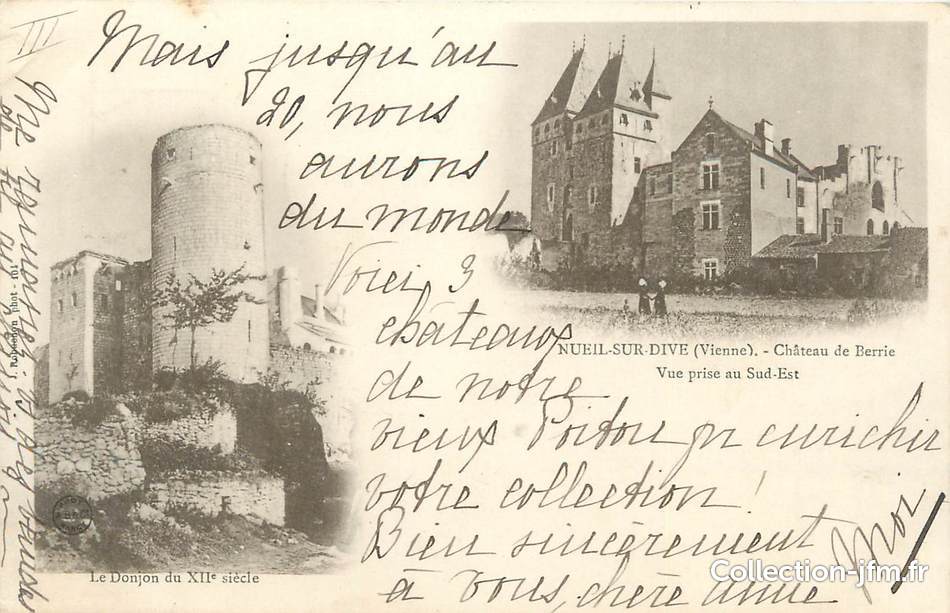 III
Mais jusqu'au
20, nous
aurons
du monde
Voici 3
châteaux
de notre
vieux Poitou pr enrichir
votre collection!
Bien sincèrement
à vous, chère amie
NUEIL-SUR-DIVE (Vienne). - Château de Berrie
Vue prise au Sud-Est
Le Donjon du XIIe siècle
phot - 101
Collection-jfm.fr